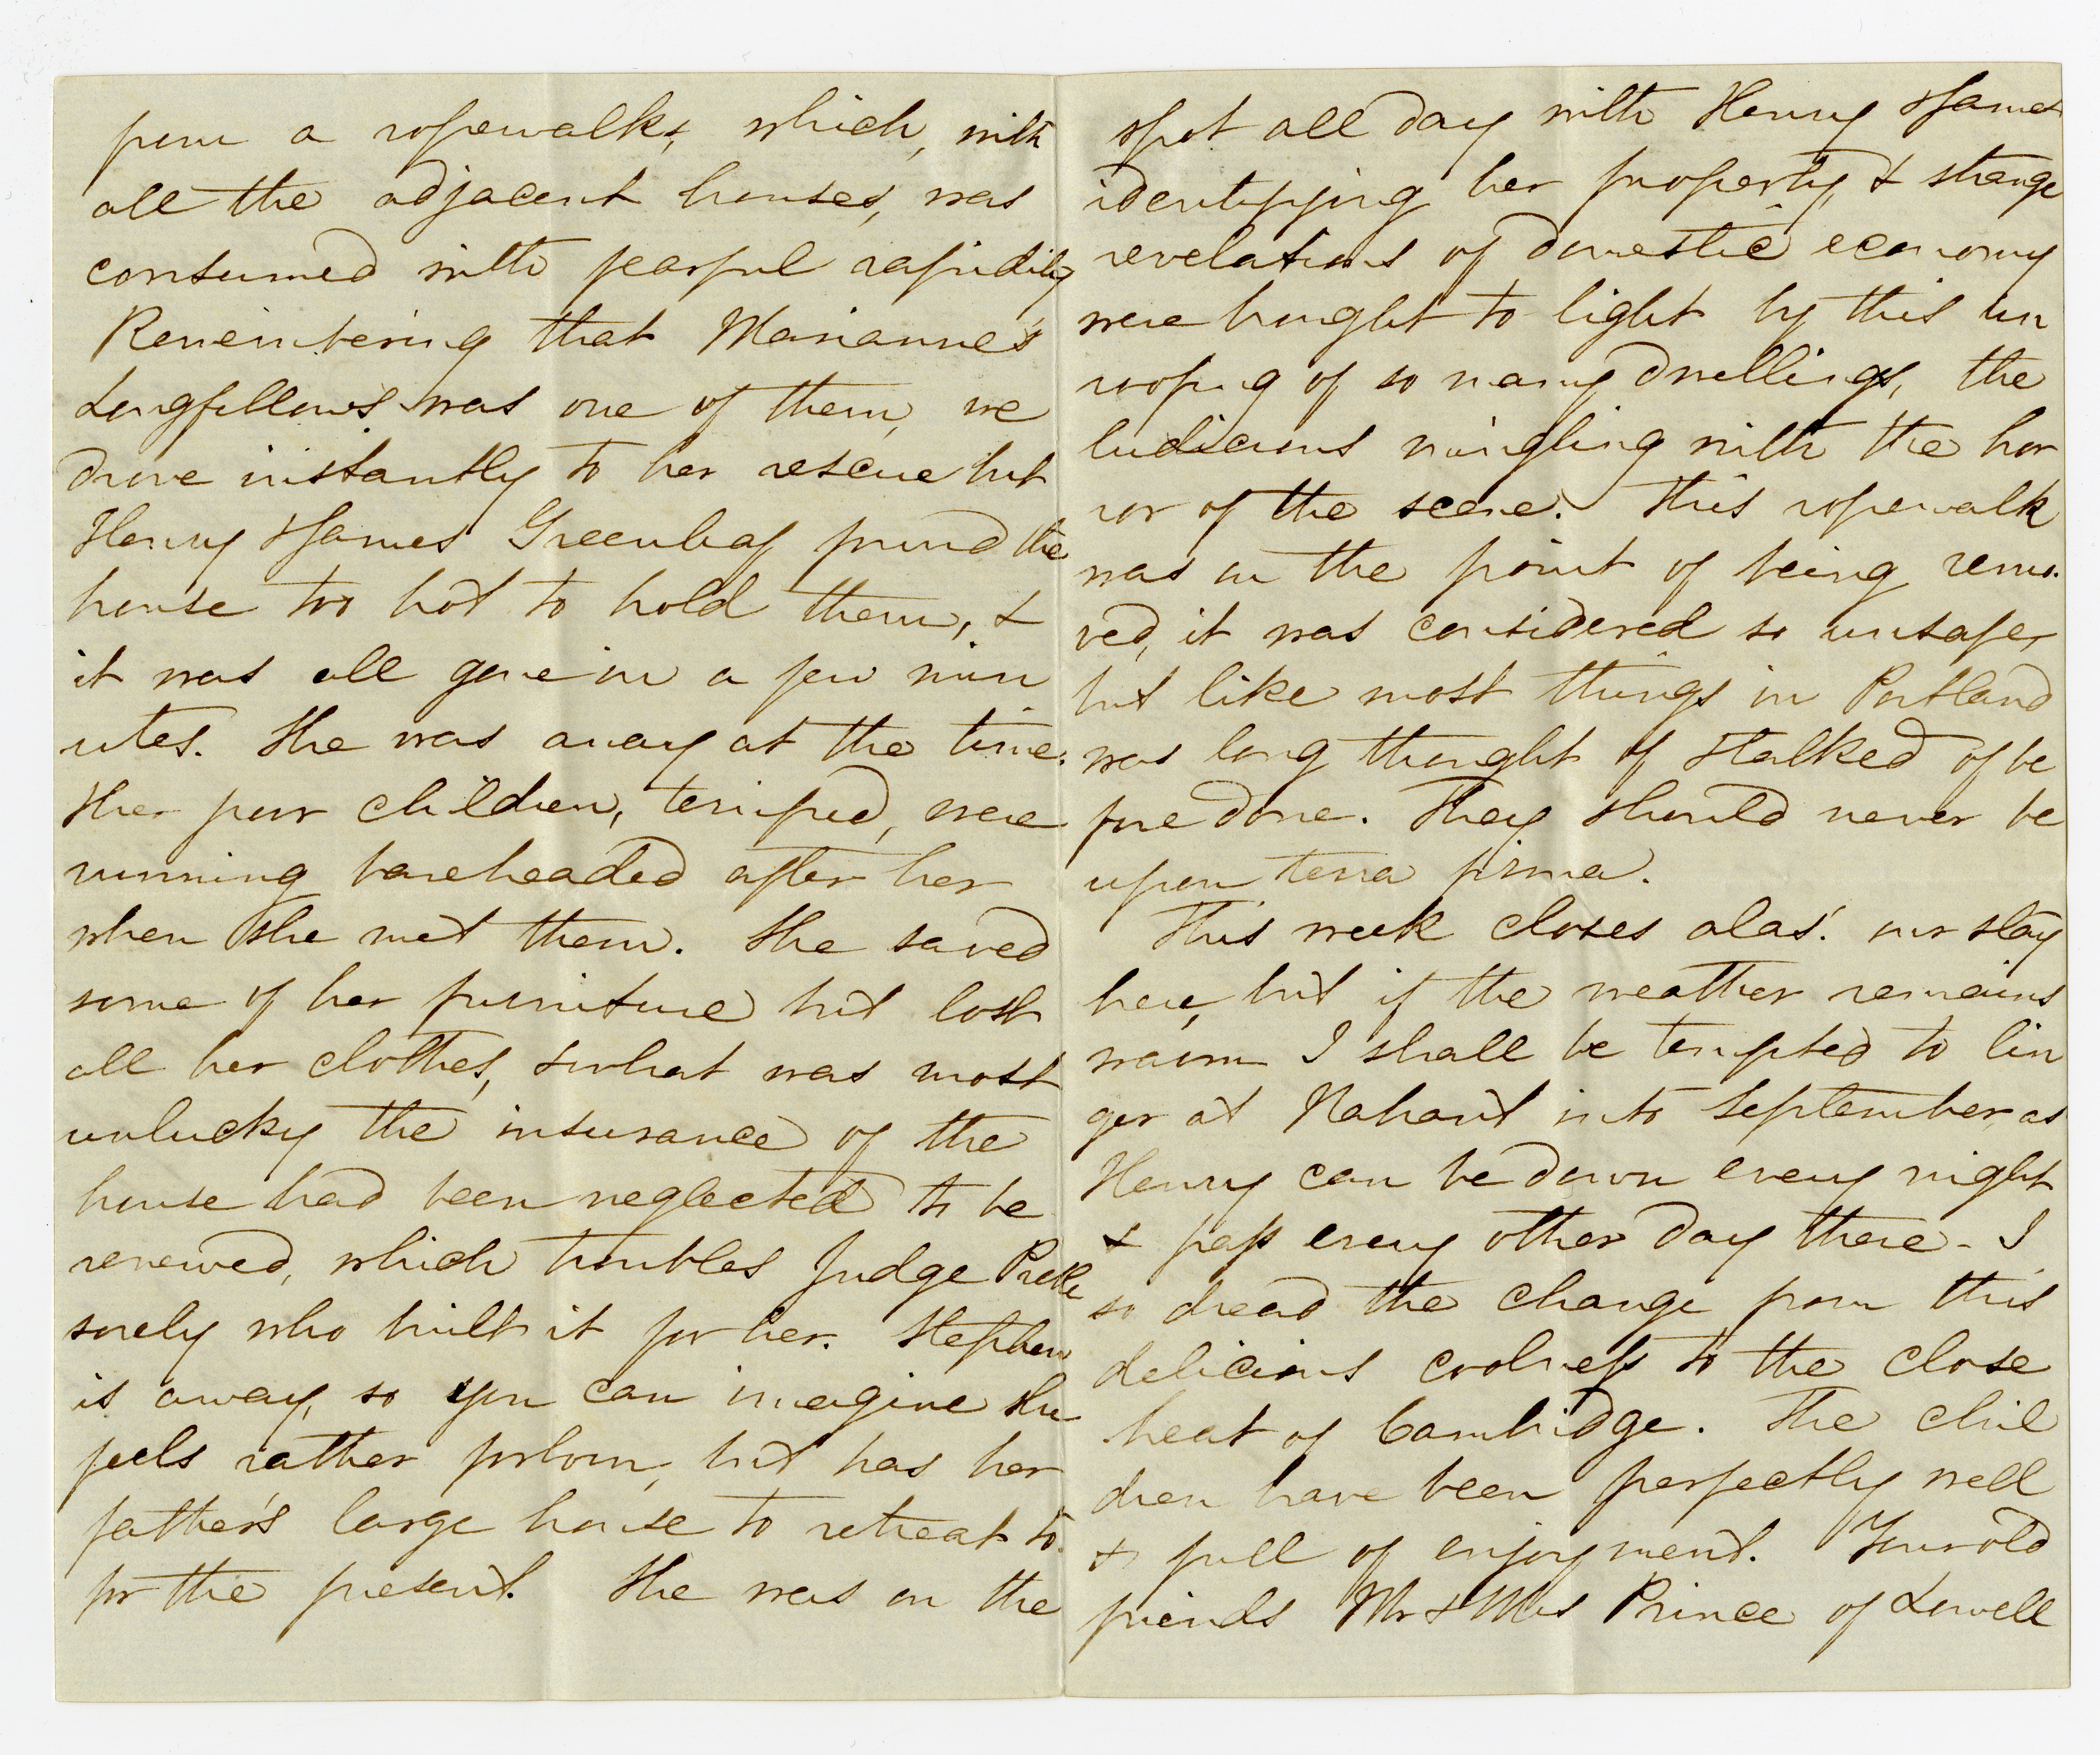 from a ropewalk, which, with
all the adjacent houses, was
consumed with fearful rapidity
Remembering that Marianne's
Longfellow's was one of them, we
drove instantly to her rescue but
Henry & James Greenleaf found the
house too hot to hold them, &
it was all gone in a few min
utes. She was away at the time.
Her poor children, terrified, were
running bareheaded after her
when she met them. She saved
some of her furniture but lost
all her clothes, & what was most
unlucky the insurance of the
house had been neglected to be
renewed, which troubles Judge Preble
sorely who built it for her. Stephen
is away, so you can imagine she
feels rather forlorn, but has her
father's large house to retreat to
for the present. She was on the
spot all day with Henry & James
identifying her property, & strange
revelations of domestic economy
were brought to light by this un
roofing of so many dwellings, the
ludicrous mingling with the hor
ror of the scene. This ropewalk
was on the point of being remo-
ved, it was considered so unsafe,
but like most things in Portland
was long thought of & talked of be
fore done. They should never be
upon terra firma.
This week closes alas! our stay
here, but if the weather remains
warm I shall be tempted to lin
ger at Nahant into September, as
Henry can be down every night
& pass every other day there - I
so dread the change from this
delicious coolness to the close
heat of Cambridge. The chil
dren have been perfectly well
& full of enjoyment. Your old
friends Mr & Mrs Prince of Lowell